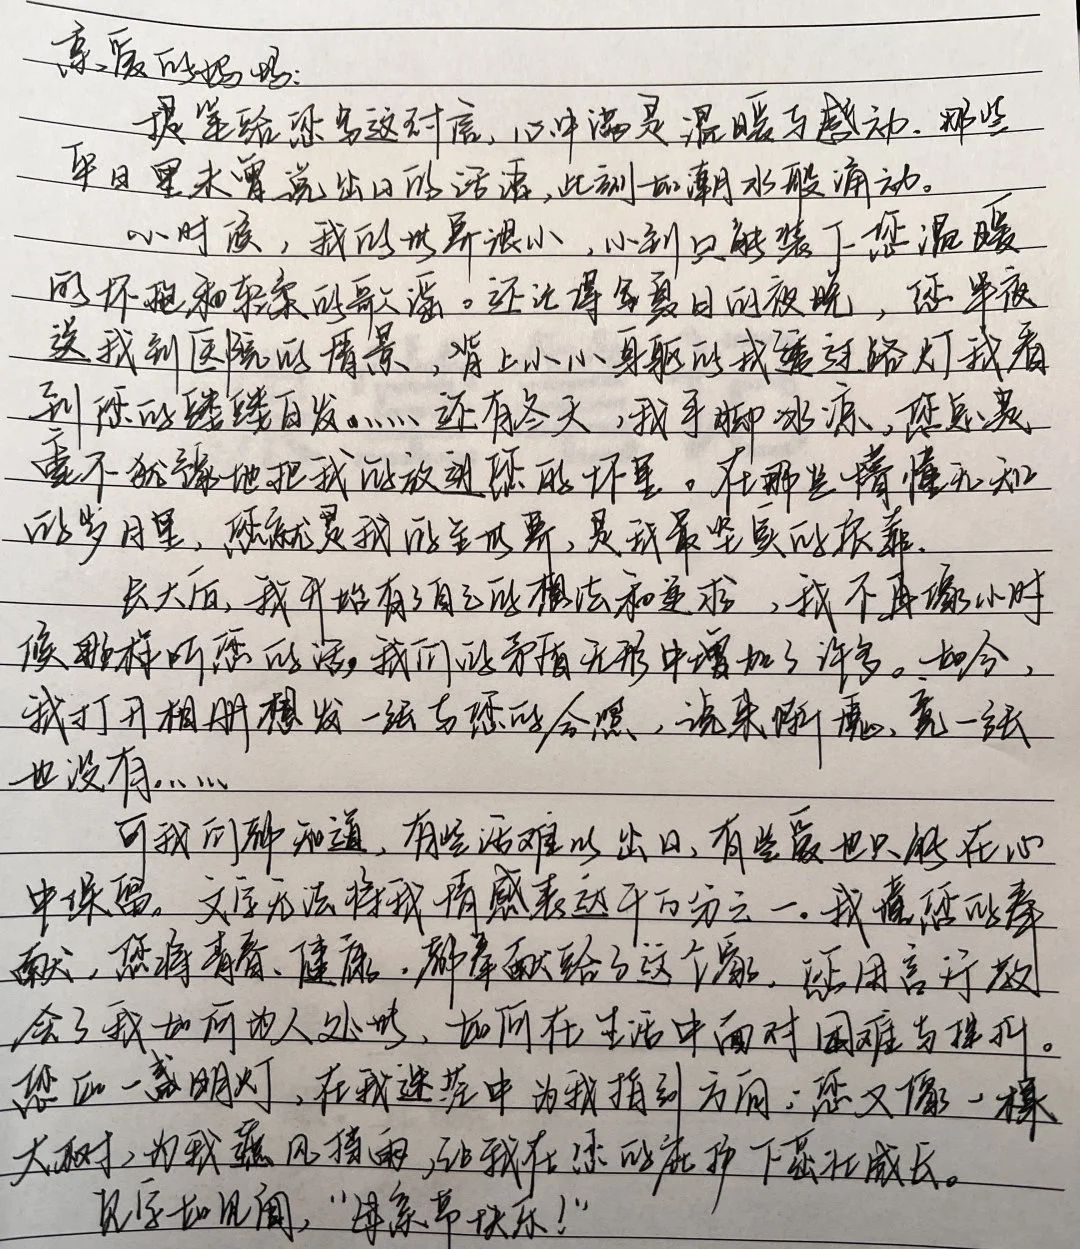 亲爱的妈妈:
提笔给您写这封信,心中满是温暖与感动.那些
平日里未曾说出口的话语,此刻如潮水般涌动。
小时候,我的世界很小,小到只能装下您温暖
的怀抱和轻柔的歌谣。还记得每夏日的夜晚,您半夜
送我到医院的情景,背上小小身躯的我透过路灯我看
到您的缕缕白发……还有冬天,我手脚冰凉,您总是
毫不犹豫地把我的放进您的怀里。在那些懵懂无知
的岁月里,您就是我的全世界,是我最坚实的依靠.
长大后,我开始有了自己的想法和追求,我不再像小时
候那样听您的话,我们的矛盾无形中增加了许多。如今,
我打开相册想发一张与您的合照,说来惭愧、竟一张
也没有……
可我们都知道,有些话难以出口,有些爱也只能在心
中保留。文字无法将我情感表达千百分之一。我懂您的奉
献,您将青春、健康,都奉献给了这个家,您用言行教
会了我如何为人处世,如何在生活中面对困难与挫折。
您如一盏明灯,在我迷茫中为我指引方向;您又像一棵
大树,为我遮风挡雨,让我在您的庇护下茁壮成长。
见字如见面,“母亲节快乐!”